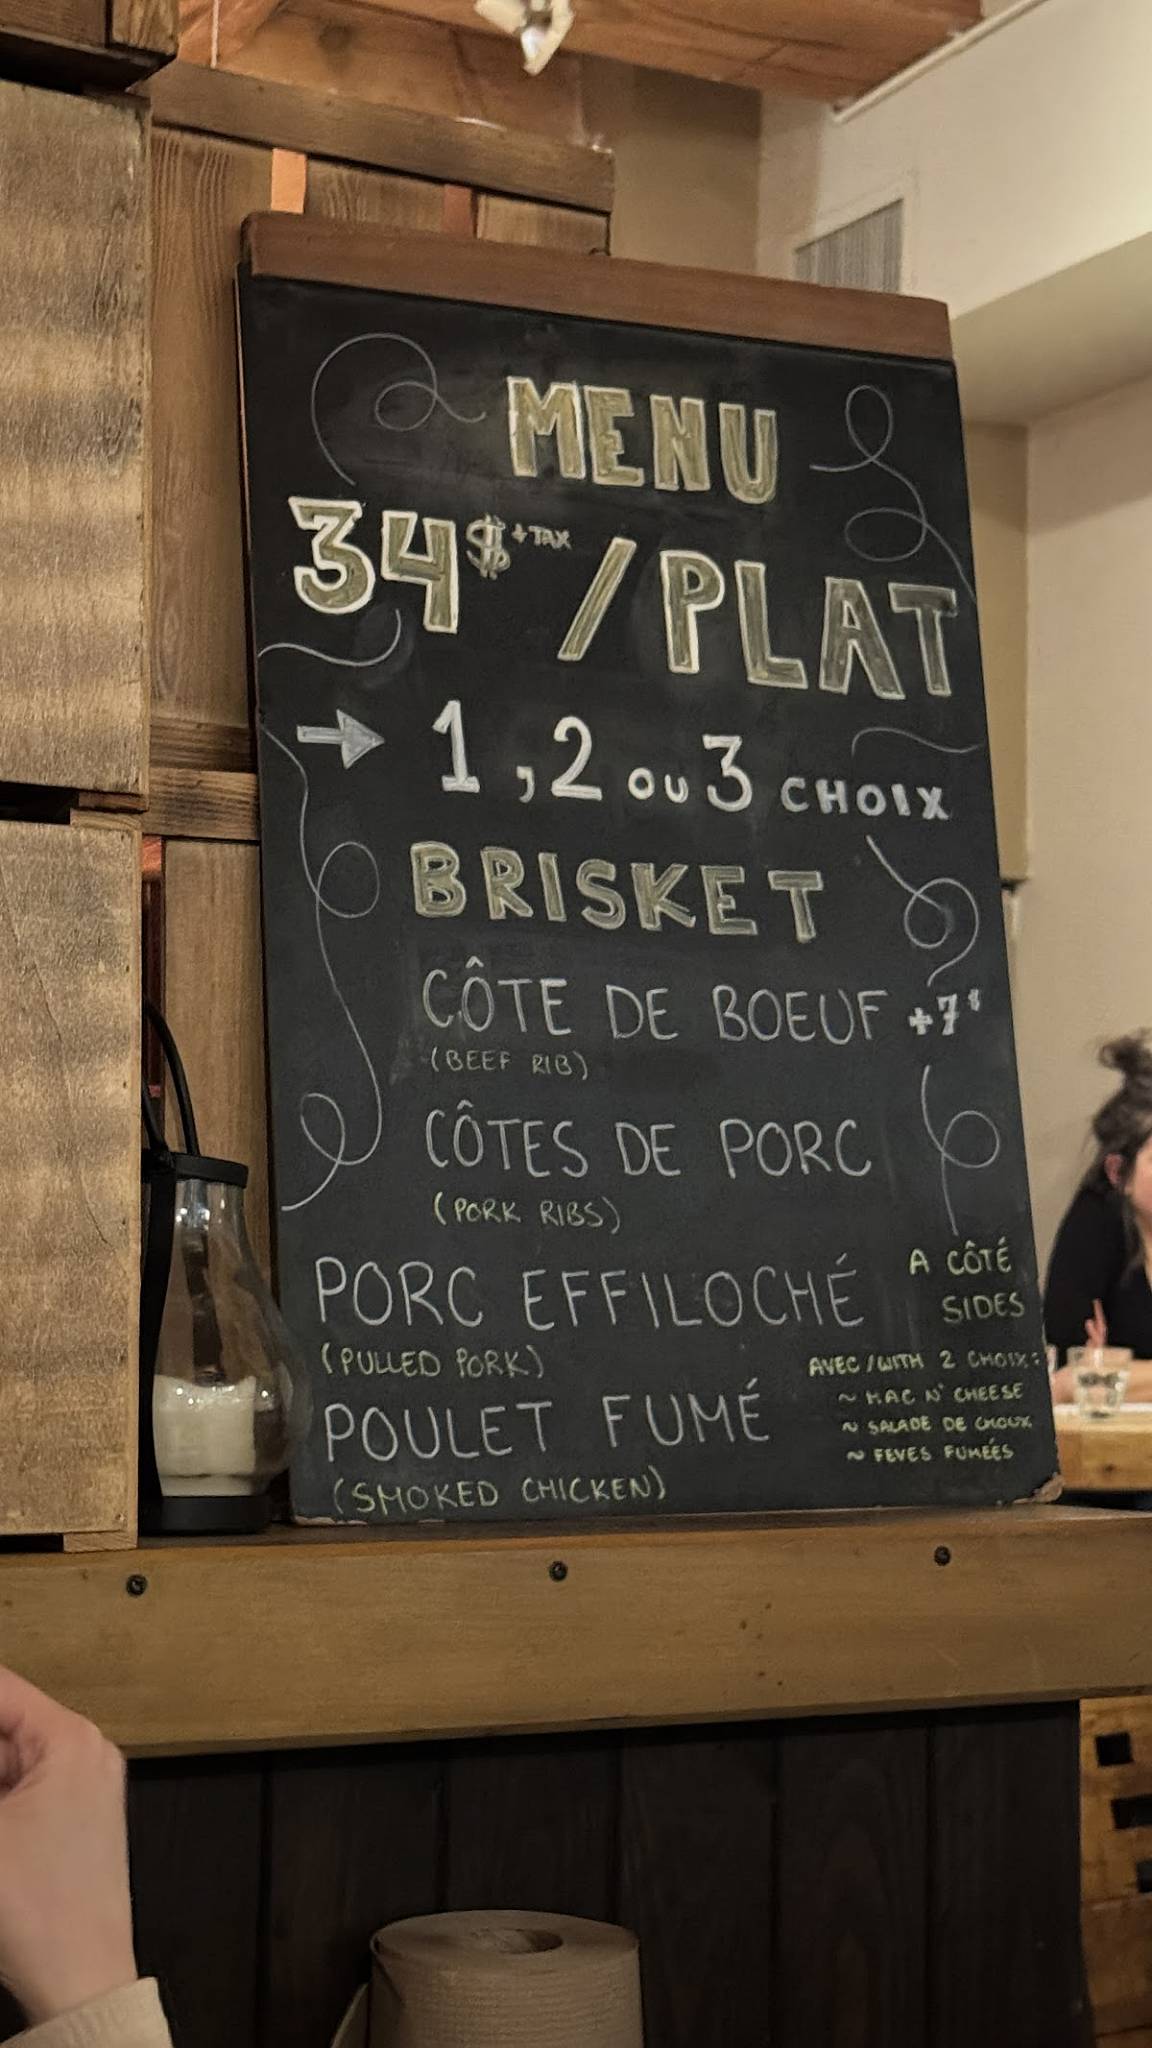 MENU
34$ + TAX / PLAT
→ 1, 2 OU 3 CHOIX
BRISKET
CÔTE DE BOEUF +7$
(BEEF RIB)
CÔTES DE PORC
(PORK RIBS)
PORC EFFILOCHÉ
(PULLED PORK)
POULET FUMÉ
(SMOKED CHICKEN)
A CÔTÉ
SIDES
AVEC / WITH 2 CHOIX:
~ MAC N' CHEESE
~ SALADE DE CHOUX
~ FEVES FUMÉES